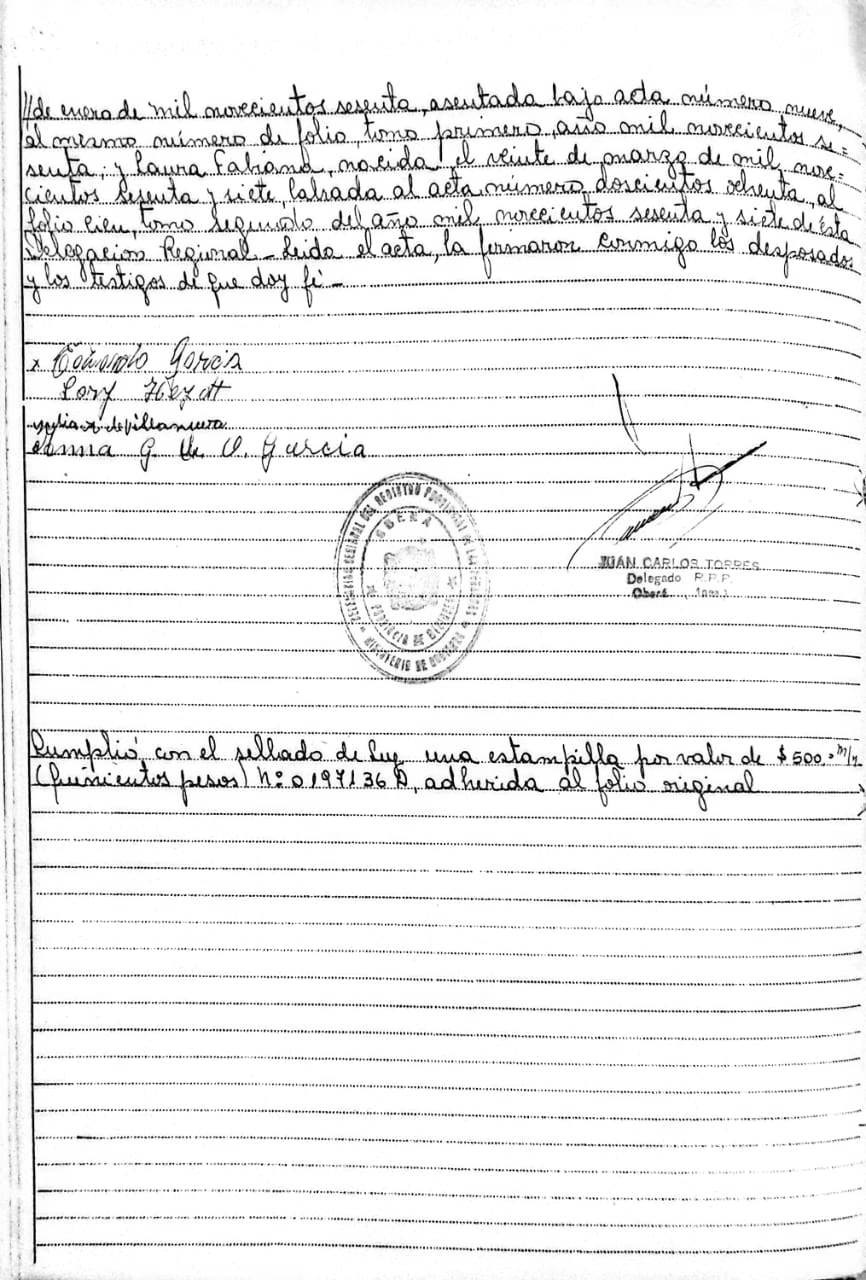 //de enero de mil novecientos sesenta, asentada bajo acta número nueve,
al mismo número de folio, tomo primero, año mil novecientos se=
senta; y Laura Fabiana, nacida el veinte de marzo de mil nove=
cientos sesenta y siete, labrada al acta número doscientos ochenta, al
folio cien, tomo segundo del año mil novecientos sesenta y siete de ésta
Delegacion Regional - Leida el acta, la firmaron conmigo los desposados
y los testigos de que doy fé -
x García
de Villanueva
G. O. García
OBERA
PROVINCIA DE MISIONES
MINISTERIO DE GOBIERNO
JUAN CARLOS TORRES
Delegado R.P.P.
Oberá
Cumplió con el sellado de Ley una estampilla por valor de $ 500.= m/n
(Quinientos pesos) Nº 0197136 D, adherida al folio original